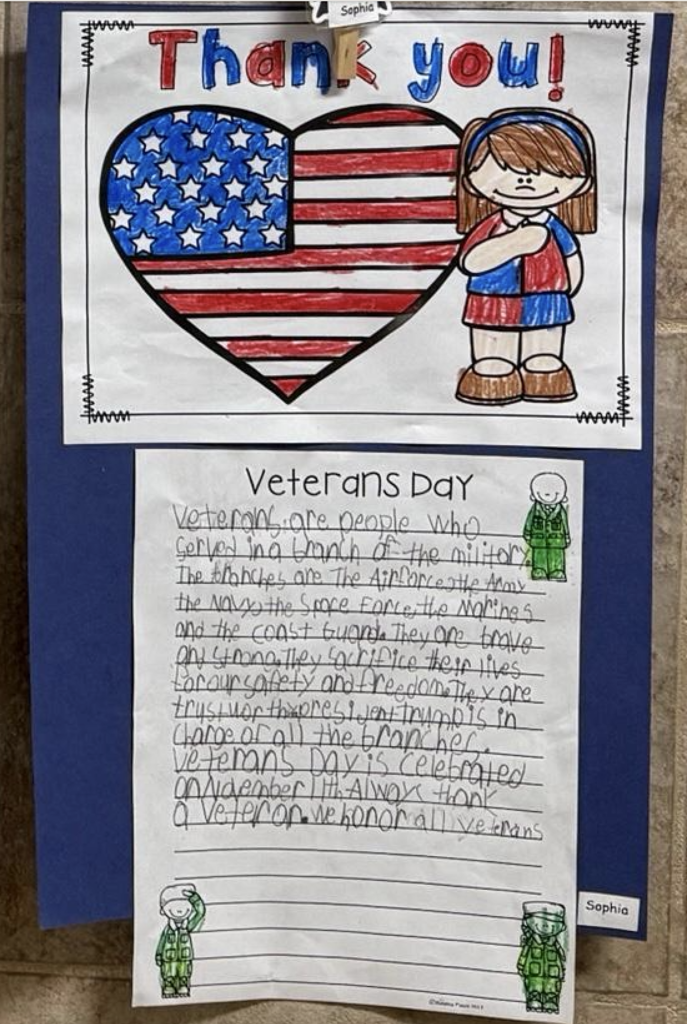 Sophia
Thank you!
Veterans Day
Veterans are people who
served in a branch of the military.
The branches are The Airforce, the Army
the Navy, the Space Force, the Marines
and the coast Guard. They are brave
and strong. They sacrifice their lives
for our safety and freedom. They are
trustworthy. president trump is in
charge of all the branches.
Veterans Day is celebrated
on November 11th. Always thank
a Veteran. We honor all veterans
Sophia